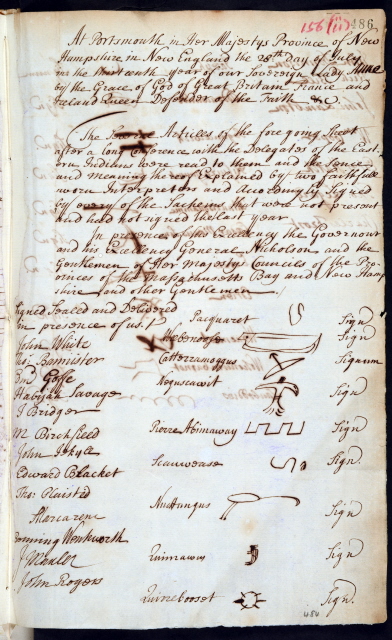 156 (ii) 486
At Portsmouth in Her Majestys Province of New
Hampshire in New England the 28th day of July
in the thirteenth year of our Sovereign Lady Anne
by the Grace of God of Great Britain France and
Ireland Queen Defender of the Faith &c.
The Several Articles of the foregoing Sheet
after a Long Conference with the Delegates of the East
ern Indians were read to them and the Sence
and meaning thereof Explained by two faithfull
sworn Interpretors and Accordingly Signed
by every of the Sachems that were not present
and had not signed the last year
In presence of his Excellency the Governour
and his Excellency General Nicholson and the
Gentlemen of Her Majestys Councils of the Pro-
vinces of the Massachusetts Bay and New Hamp
shire and other Gentlemen
Signed Sealed and Delivered
in presence of us.
Pacquaret Sign
John White
Sign
Bannister
Catterramoggus Signum
Goffe
Habijah Savage
Sign
J Bridger
M Birchfeed
Sign
John Jekyll
Edward Blacket
Scauwease Sign.
Tho: Plaisted
Nuttungus Sign
Mascarene
Benning Wentworth
Quinnawus Sign
John Rogers
Quinebooset Sign.
486